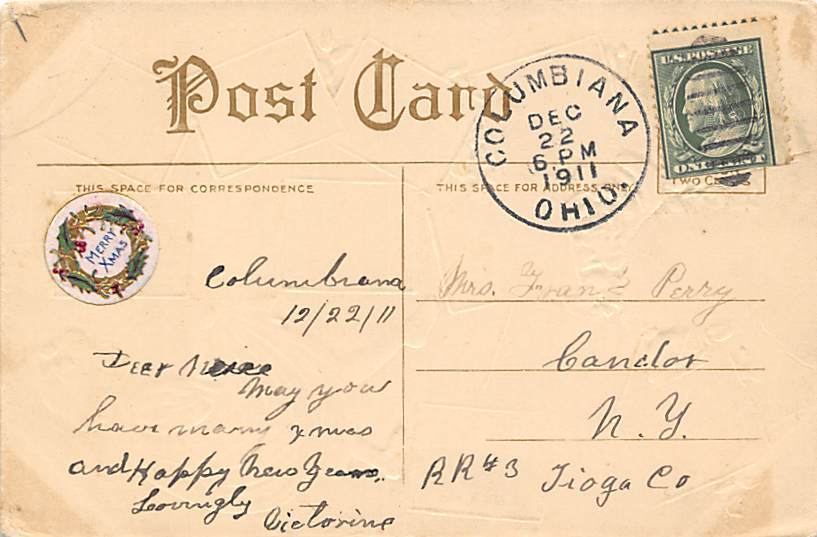 Post Card
COLUMBIANA
DEC
22
6 PM
1911
OHIO
U.S. POSTAGE
ONE CENT
THIS SPACE FOR CORRESPONDENCE
THIS SPACE FOR ADDRESS ONLY
TWO CENTS
MERRY
XMAS
Columbiana
12/22/11
Dear Niece
May you
have many xmas
and Happy New Years,
Lovingly
Victorine
Mrs. Frank Perry
Candor
N. Y.
RR#3 Tioga Co